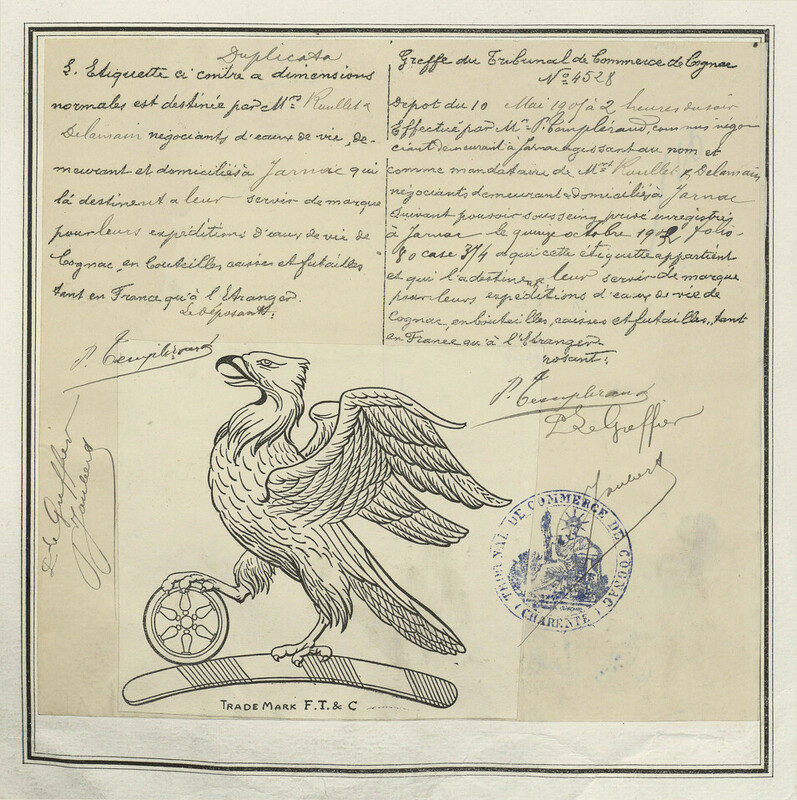 Duplicata
L'Etiquette ci contre a dimensions
normales est destinée par Mrs Roullet &
Delamain négociants d'eaux de vie, de-
meurant et domiciliés à Jarnac qui
la destinent a leur servir de marque
pour leurs expéditions d'eaux de vie de
Cognac, en bouteilles caisses et futailles
tant en France qu'à l'Etranger.
Le déposant:
P. Templéraud
P. Le Greffier
Joubert
Greffe du Tribunal de Commerce de Cognac
No 4528
Dépot du 10 Mai 1907 à 2 heures du soir
Effectué par Mr P. Templéraud, négo-
ciant demeurant à Jarnac agissant au nom et
comme mandataire de Mrs Roullet & Delamain
négociants, demeurant & domiciliés à Jarnac
Suivant pouvoir sous seing privé enregistré
à Jarnac le quinze octobre folio
80 case 374 d qui cette étiquette appartient
et qui l'a destinent leur servir de marque
pour leurs expéditions d'eaux de vie de
Cognac, en bouteilles, caisses et futailles, tant
en France qu'à l'Etranger
posant:
P. Templéraud
P. Le Greffier
Joubert
TRIBUNAL DE COMMERCE DE COGNAC
(CHARENTE)
TRADE MARK F.T. & C